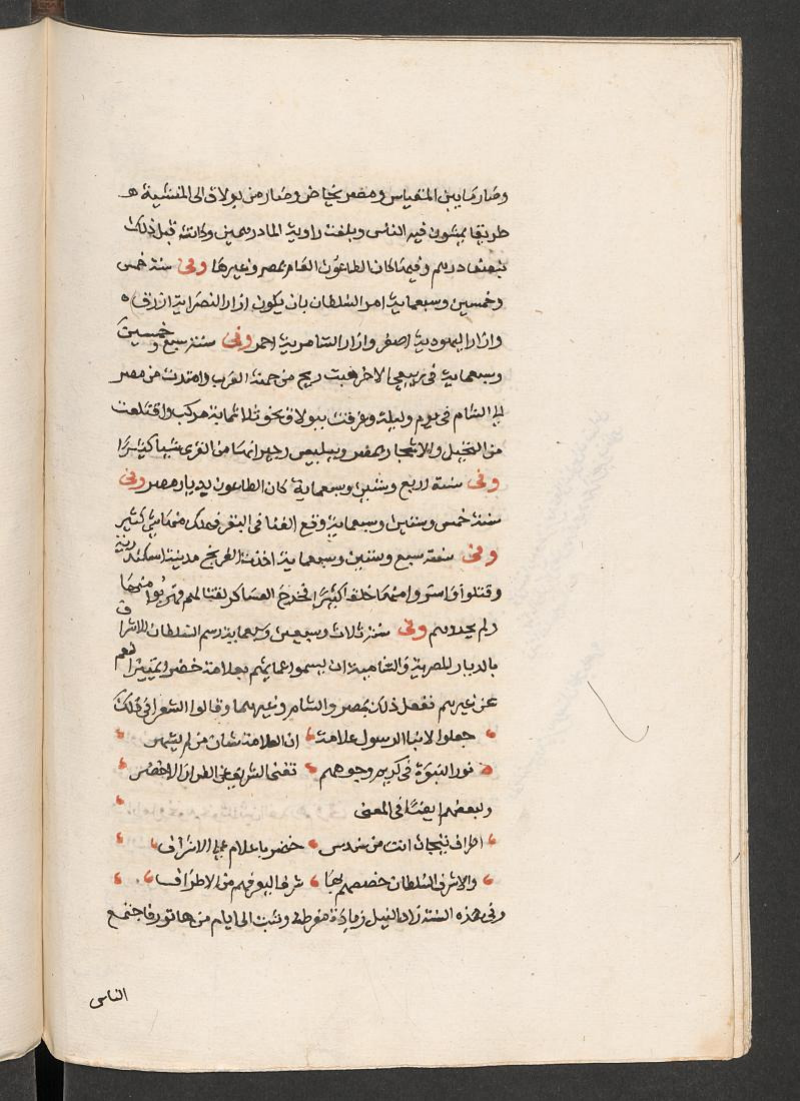 وصار ما بين المقياس ومصر يخاض وصار من بولاق الى المنشية ه
طريقا يمشون فيه الناس وبلغت راوية الما درهمين وكانت قبل ذلك
بنصف درهم وفيها كان الطاعون العام بمصر وغيرها وفى سنة خمس
وخمسين وسبعماية امر السلطان بان يكون ازار النصرانية ازرق ه
وازار اليهودية اصفر وازار السامرية احمر وفى سنة سبع وخمسين
وسبعماية فى ربيع الاخر هبت ريح من جهة الغرب وامتدت من مصر
الى الشام فى يوم وليلة وغرقت ببولاق نحو ثلاثماية مركب واقتلعت
من النخيل والاشجار بمصر وبلبيس وغيرهما من القرى شيا كثيرا
وفى سنة اربع وستين وسبعماية كان الطاعون بديار مصر وفى
سنة خمس وستين وسبعماية وقع الفنا فى البقر فهلك منها شى كثير
وفى سنة سبع وستين وسبعماية اخذت الفرنج مدينة اسكندرية
وقتلوا واسروا منها خلقا كثيرا فخرج العساكر لقتالهم فهربوا منها
ولم يجدوهم وفى سنة ثلاث وسبعين وسبعماية رسم السلطان للاشراف
بالديار المصرية والشامية ان يسموا عمايمهم بعلامة خضرا تمييزا لهم
عن غيرهم ففعل ذلك بمصر والشام وغيرهما وقالوا الشعرا فى ذلك
جعلوا لابنا الرسول علامة ان العلامة شان من لم يشهر
نور النبوة فى كريم وجوههم تغنى الشريف عن الطراز الاخضر
ولبعضهم ايضا فى المعنى
اطراف تيجان اتت من سندس خضر باعلام على الاشراف
والاشرف السلطان خصصهم بها شرفا ليعرفهم من الاطراف
وفى هذه السنة زاد النيل زيادة مفرطة وثبت الى ايام من هاتور فاجتمع
الناس